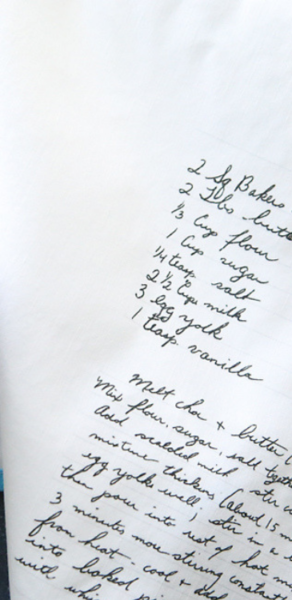 2 Sq Bakers
2 Tbs butte
⅓ Cup flour
1 Cup sugar
¼ teasp salt
2 ½ Cups milk
3 egg yolk
1 teasp vanilla
Melt choc + butter
Mix flour, sugar, salt togeth
Add scalded milk - stir
mixture thickens (about 15 m
egg yolks well; stir in a
then pour into rest of hot m
3 minutes more stirring constant
from heat - cool + add
into baked pi
with whip